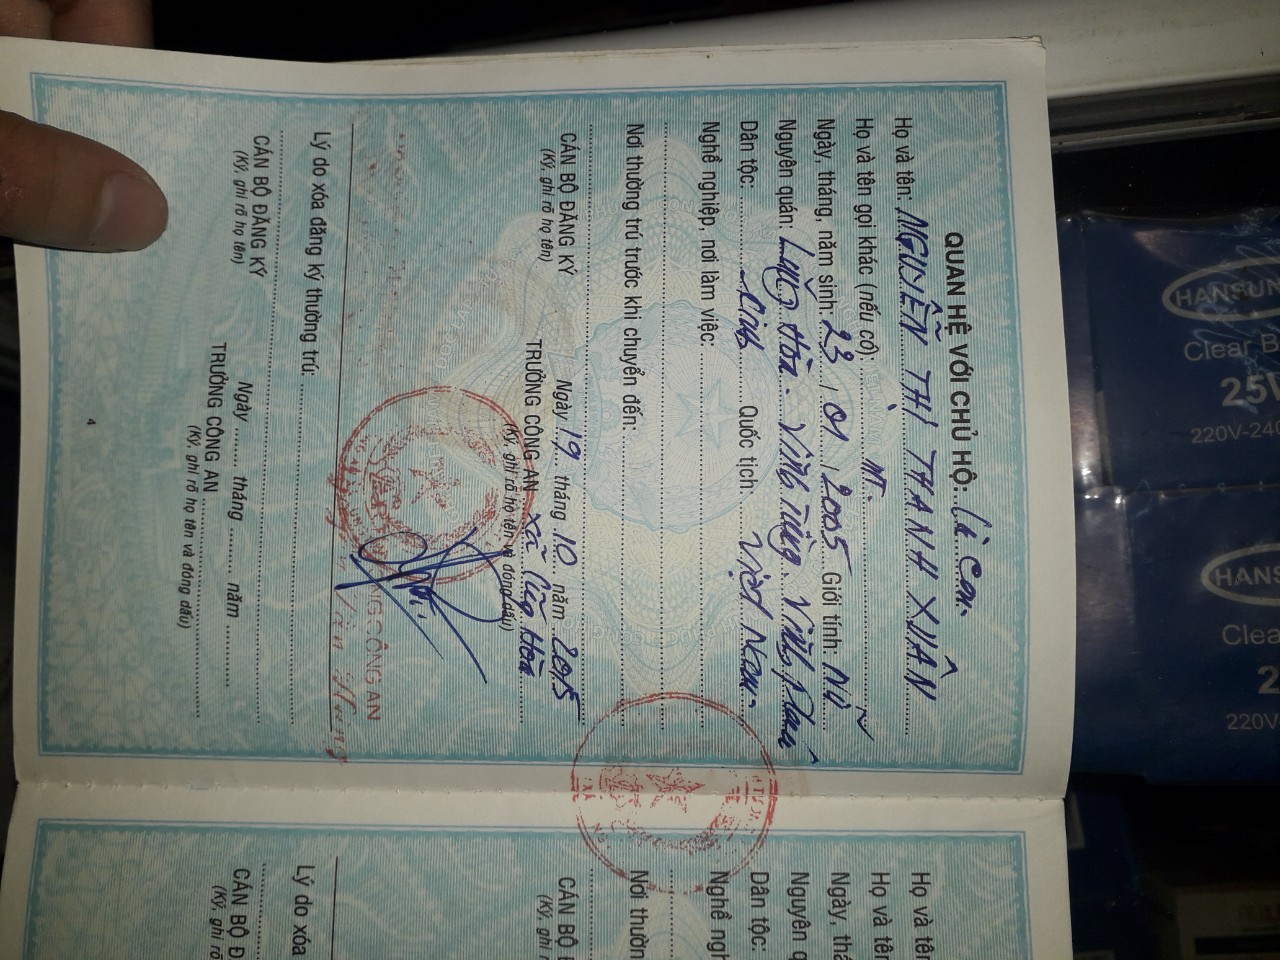 QUAN HỆ VỚI CHỦ HỘ: Là con.
Họ và tên: NGUYỄN THỊ THANH XUÂN
Họ và tên gọi khác (nếu có):
Ngày, tháng, năm sinh: 23 / 01 / 2005 Giới tính: Nữ
Nguyên quán: Lũng Hòa. Vĩnh Tường. Vĩnh Phúc
Dân tộc: Kinh Quốc tịch: Việt Nam.
Nghề nghiệp, nơi làm việc:
Nơi thường trú trước khi chuyển đến:
Ngày 19 tháng 10 năm 2015
CÁN BỘ ĐĂNG KÝ
(Ký, ghi rõ họ tên)
TRƯỞNG CÔNG AN xã Lũng Hòa
(Ký, ghi rõ họ tên và đóng dấu)
CÔNG AN
Lý do xóa đăng ký thường trú:
Ngày tháng năm
CÁN BỘ ĐĂNG KÝ
(Ký, ghi rõ họ tên)
TRƯỞNG CÔNG AN
(Ký, ghi rõ họ tên và đóng dấu)
4
Họ và tên
Họ và tên
Ngày, thá
Nguyên q
Dân tộc:
Nghề ngh
Nơi thườn
CÁN BỘ
(Ký, ghi
Lý do xóa
CÁN BỘ Đ
(Ký, ghi rõ
HANSUN
Clear B
25W
220V-240
HANS
Clea
2
220V